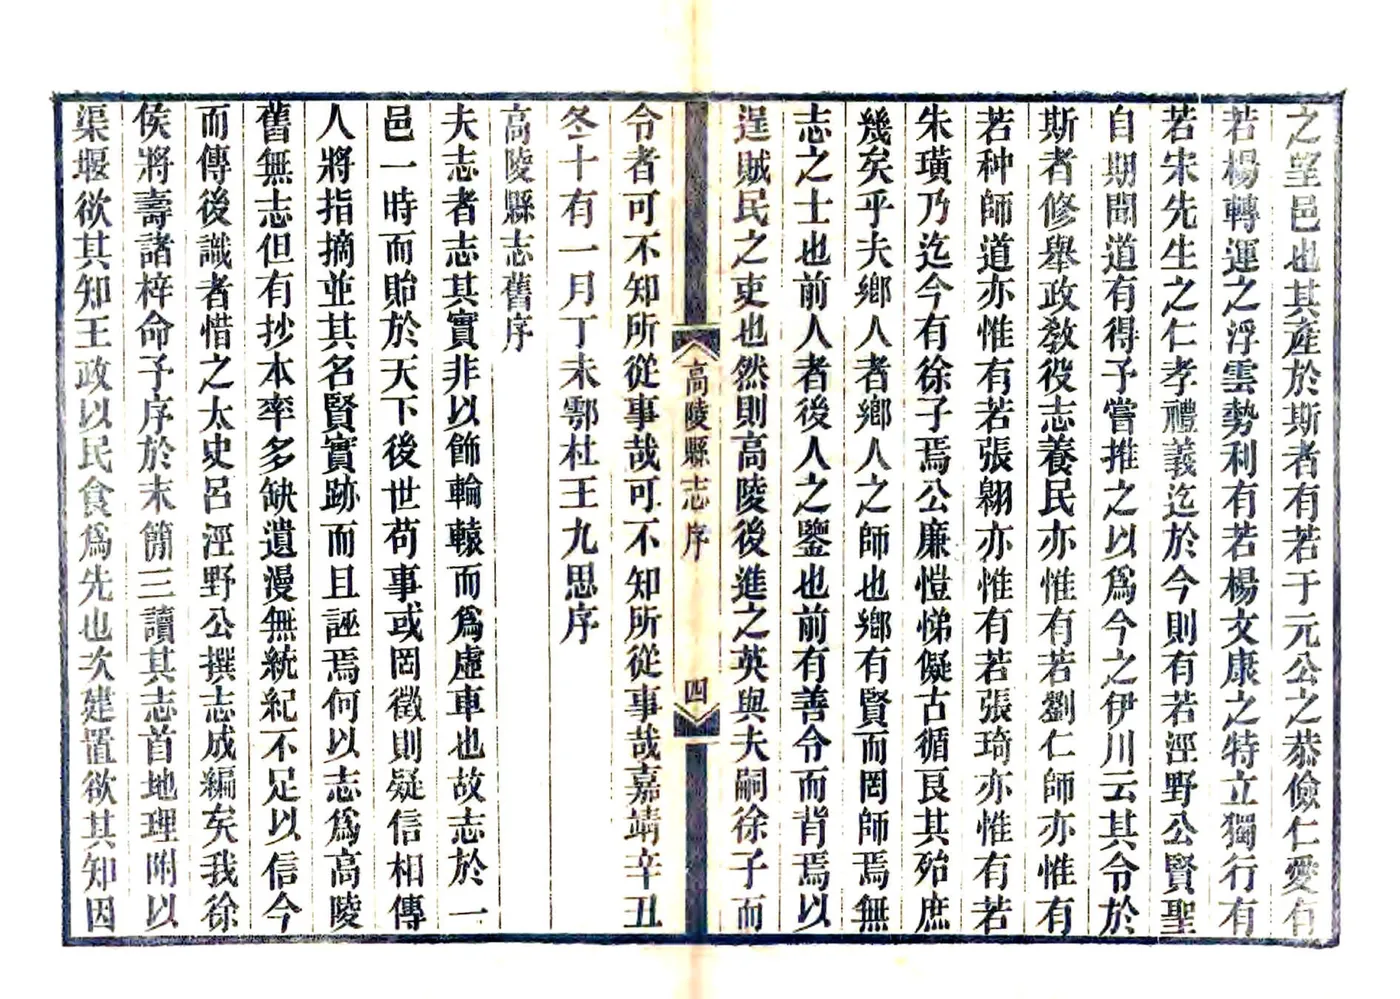 之望邑也其產於斯者有若于元公之恭儉仁愛有
若楊轉運之浮雲勢利有若楊文康之特立獨行有
若宋先生之仁孝禮義迄於今則有若涇野公賢聖
自期聞道有得予嘗推之以爲今之伊川云其令於
斯者修舉政敎役志養民亦惟有若劉仁師亦惟有
若种師道亦惟有若張翺亦惟有若張琦亦惟有若
朱璜乃迄今有徐子焉公廉愷悌儗古循良其殆庶
幾矣乎夫鄉人者鄉人之師也鄉有賢而罔師焉無
志之士也前人者後人之鑒也前有善令而背焉以
逞賊民之吏也然則高陵後進之英與夫嗣徐子而
高陵縣志序 四
令者可不知所從事哉可不知所從事哉嘉靖辛丑
冬十有一月丁未鄠杜王九思序
高陵縣志舊序
夫志者志其實非以飾輪轅而爲虛車也故志於一
邑一時而貽於天下後世苟事或罔徵則疑信相傳
人將指摘並其名賢實跡而且誣焉何以志爲高陵
舊無志但有抄本率多缺遺漫無統紀不足以信今
而傳後識者惜之太史呂涇野公撰志成編矣我徐
侯將壽諸梓命予序於末簡三讀其志首地理附以
渠堰欲其知王政以民食爲先也次建置欲其知因